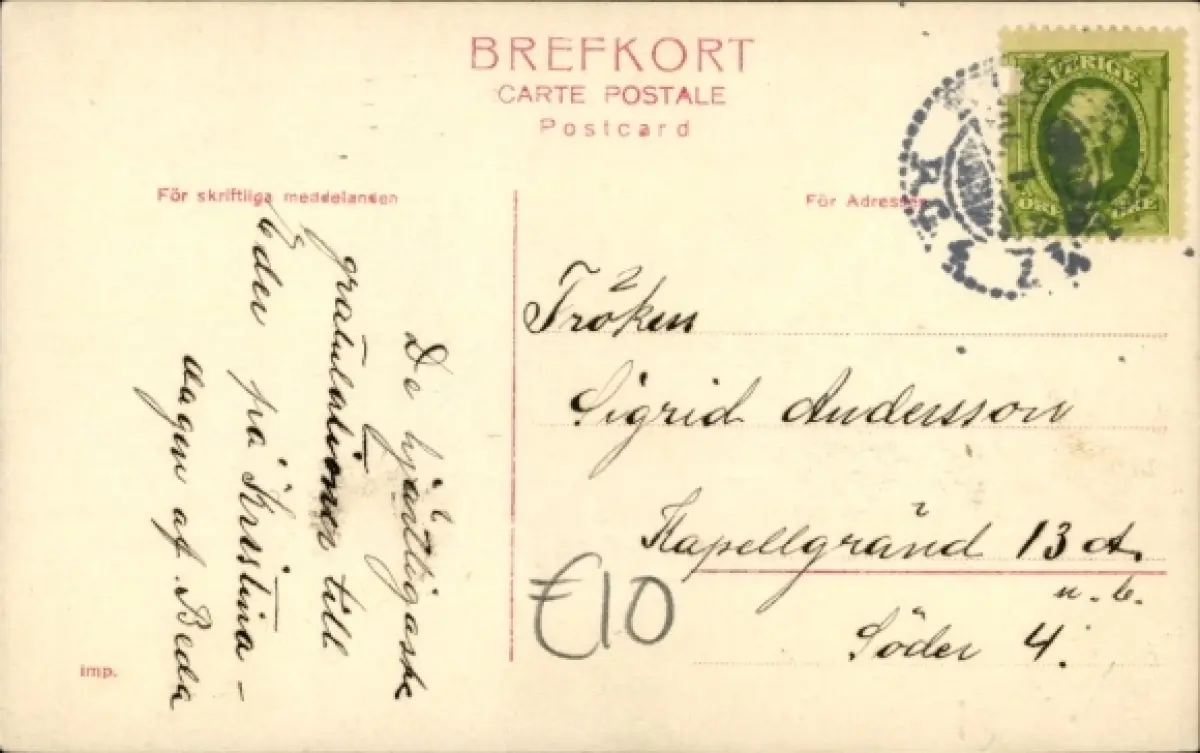 BREFKORT
CARTE POSTALE
Postcard
För skriftliga meddelanden
För Adressen
SVERIGE
De hjärtligaste
gratulationer till
Eder på Kristina-
dagen af Beda
Fröken
Sigrid Andersson
Kapellgränd 13 A.
n. b.
Söder 4.
€10
imp.